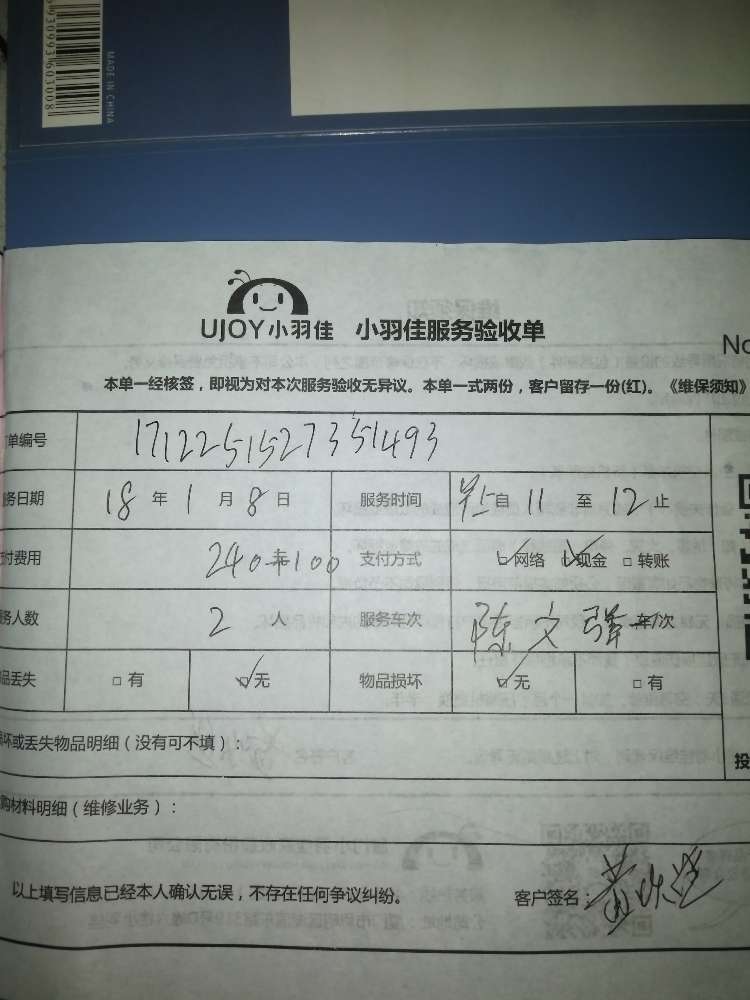 930993603008
MADE IN CHINA
UJOY小羽佳 小羽佳服务验收单
No
本单一经核签，即视为对本次服务验收无异议。本单一式两份，客户留存一份(红)。《维保须知》
单编号 171225152735493
务日期 18 年 1 月 8 日 服务时间 早上自 11 至 12 止
付费用 240+100 支付方式 □网络 □现金 □转账
务人数 2 人 服务车次 陈文强 车次
品丢失 □有 □无 物品损坏 □无 □有
坏或丢失物品明细（没有可不填）：
投
购材料明细（维修业务）：
以上填写信息已经本人确认无误，不存在任何争议纠纷。 客户签名：黄